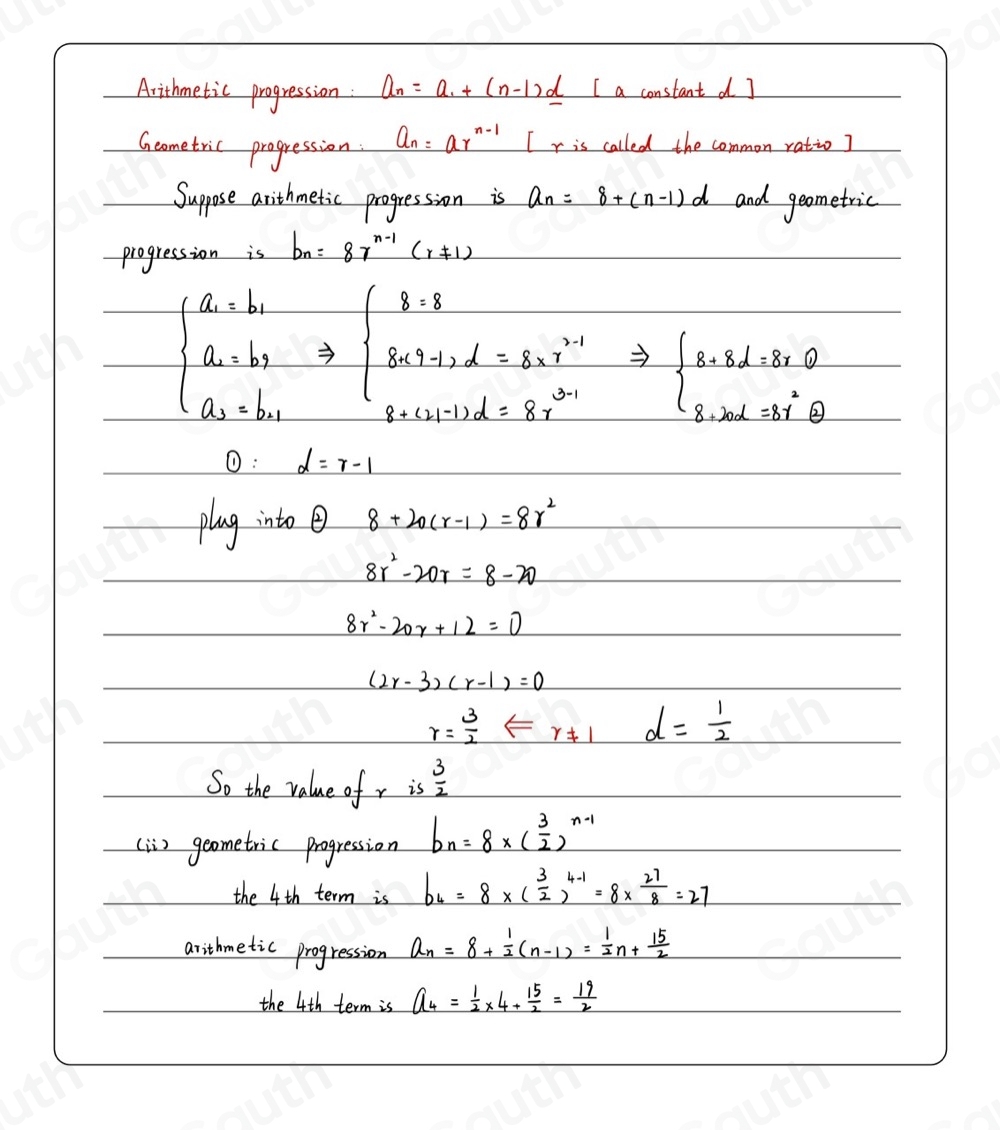 Arithmetic progression: an = a1 + (n-1)d [ a constant d ]
Geometric progression: an = ar^n-1 [ r is called the common ratio ]
Suppose arithmetic progression is an = 8+(n-1)d and geometric
progression is bn = 8r^n-1 (r≠1)
{ a1 = b1 ⇒ { 8 = 8
a2 = b9 8+(9-1)d = 8×r^2-1 ⇒ { 8+8d = 8r ①
a3 = b21 8+(21-1)d = 8r^3-1 8+20d = 8r² ②
①: d = r-1
plug into ② 8+20(r-1) = 8r²
8r²-20r = 8-20
8r²-20r+12 = 0
(2r-3)(r-1) = 0
r = 3/2 ⇐ r≠1 d = 1/2
So the value of r is 3/2
(ii) geometric progression bn = 8×(3/2)^n-1
the 4th term is b4 = 8×(3/2)^4-1 = 8×27/8 = 27
arithmetic progression an = 8+1/2(n-1) = 1/2n+15/2
the 4th term is a4 = 1/2×4+15/2 = 19/2
Gauth